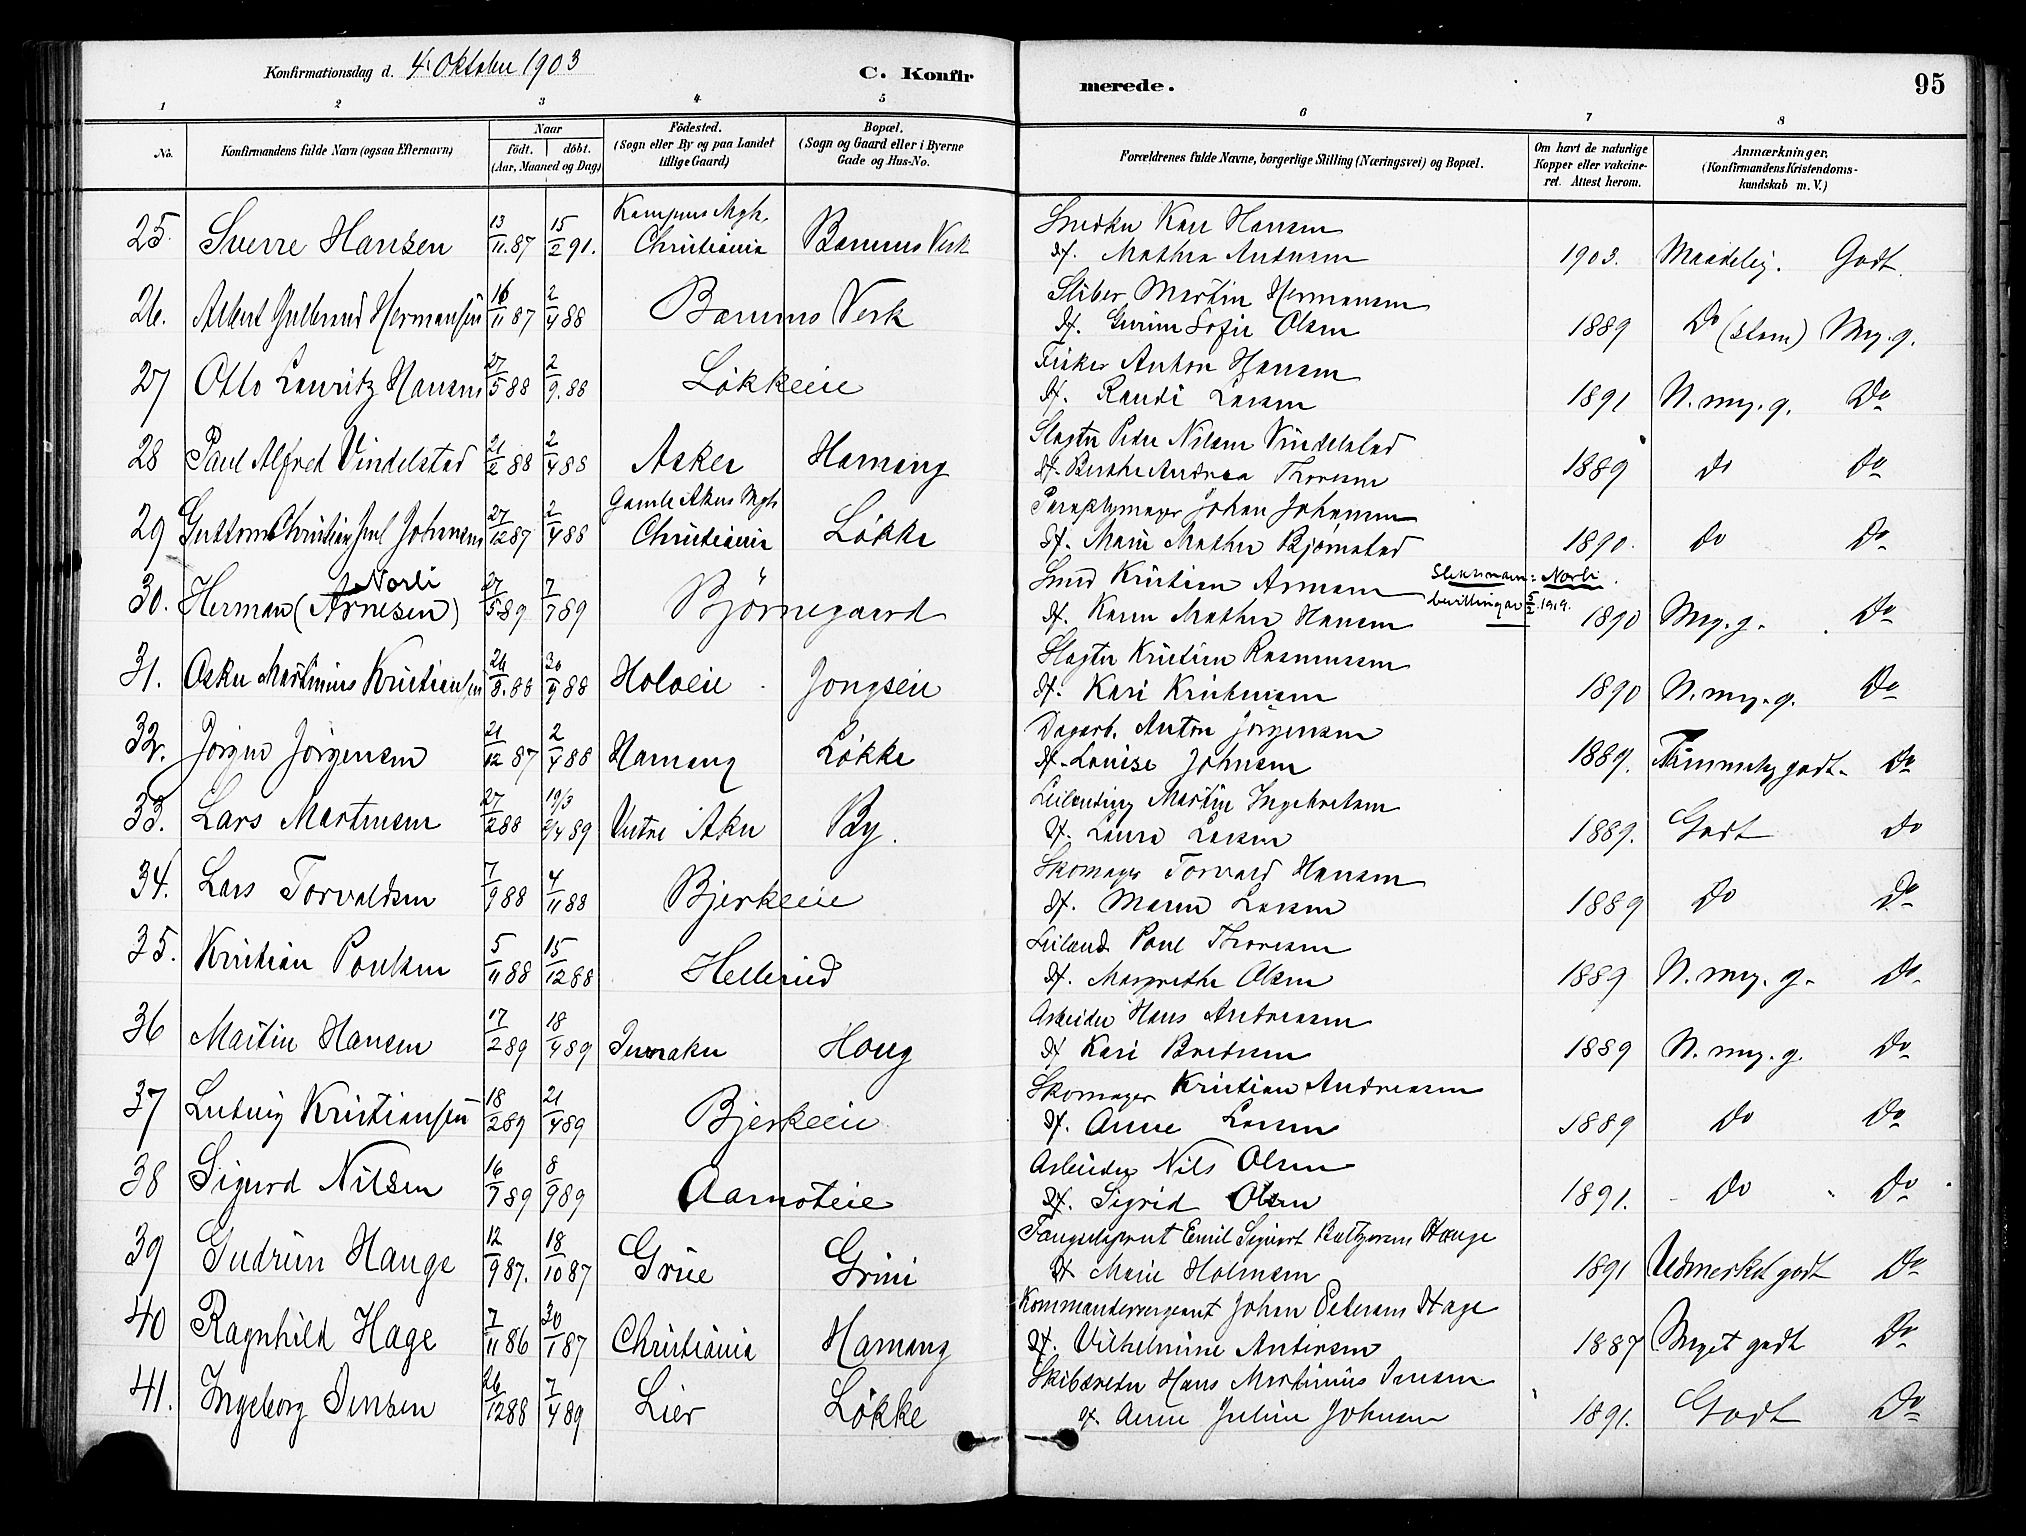 Konfirmationsdag d. 4. Oktober 1903
C. Konfir
merede.
95
1 2 3 4 5 6 7 8
No.
Konfirmandens fulde Navn (ogsaa Efternavn)
Naar
födt. döbt.
(Aar, Maaned og Dag)
Födested.
(Sogn eller By og paa Landet tillige Gaard)
Bopæl.
(Sogn og Gaard eller i Byerne Gade og Hus-No.
Forældrenes fulde Navne, borgerlige Stilling (Næringsvei) og Bopæl.
Om havt de naturlige Kopper eller vakcineret. Attest herom.
Anmærkninger.
(Konfirmandens Kristendomskundskab m. V.)
25. Sverre Hansen 13/11.87 15/2 91. Kampens Mgh. Christiania Bærums Verk
Hansen
1903. Maadelig. Godt.
26. Albert Gulbrand Hermansen 16/11 87 2/4 88 Bærums Verk
Sliber Martin Hermansen
Sofie Olsen 1889 Do (stam) Mg. g.
27 Otto Lauritz Hansen 27/5 88 2/9.88 Løkkeeie
Fisker Anton Hansen
Hf. Randi Larsen 1891 N. meg. g. Do
28 Paul Alfred Vindelstad 21/2 88 2/4 88 Asker Hamang
Slagter Peder Nilsen Vindelstad
Hf. Berthe Andrea Thoresen 1889 do Do
29 Guttorm Christian Johansen 27/12 87 2/4 88 Gamle Akers Mgh. Christiania Løkke
Paraplymager Johan Johansen
Hf. Marie Mathea Bjørnstad 1890. Do Do
30. Herman (Arnesen) Norli 27/5 89 7/7 89 Björnegaard
Smed Kristian Arnesen Slektsnavn: Norli.
Hf. Karen Mathea Hansen bevillingav 5/2.1919. 1890 Meg. g. Do
31. Oskar Martinius Kristiansen 26/8.88 30/9 88 Holoeie Jongseie
Slagter Kristian Rasmussen
Hf. Kari Kristiansen 1890 N. meg. g. Do
32. Jörgen Jörgensen 21/12 87 2/4 88 Hamang Løkke
Dagarb. Anton Jörgensen
Hf. Louise Johnsen 1889. Temmelig godt. Do
33. Lars Martinsen 27/2 88 19/3 2/4 89 Vestre Aker By.
Leilending Martin Ingebretsen
Hf. Laura Larsen 1889. Godt Do
34. Lars Torvaldsen 7/9 88 4/11 88 Bjerkeeie
Skomager Torvald Hansen
Hf. Maren Larsen 1889 Do Do
35. Kristian Poulsen 5/11 88 15/12 88 Hellerud
Leilend. Poul Thoresen
Hf. Margrethe Olsen 1889 N. meg. g. Do
36 Martin Hansen 17/2 89 18/4 89 Haug
Arbeider Hans Andreasen
Hf Kari Bredesen 1889 N. meg. g. Do
37 Ludvig Kristiansen 18/2 89 21/4 89 Bjerkeeie
Skomager Kristian Andreasen
Hf. Anne Larsen 1889 Do Do
38 Sigurd Nilsen 16/7 89 8/9 89 Aamoteie
Arbeider Nils Olsen
Hf. Sigrid Olsen 1891. Do Do
39 Gudrun Hauge 12/9 87. 18/10 87 Grue Grini
Emil Sigvart Hauge
Hf Marie Holmsen 1891 Udmerket godt Do
40 Ragnhild Hage 7/11 86 30/1 87 Christiania Hamang
Kommandersergeant Johan Petersen Hage
Hf. Vilhelmine Andersen 1887 Meget godt Do
41. Ingeborg Jensen 26/12 88 7/4 89 Lier Løkke
Skibsreder Hans Martinius Jensen
Hf. Anne Juline Johnsen 1891. Godt Do